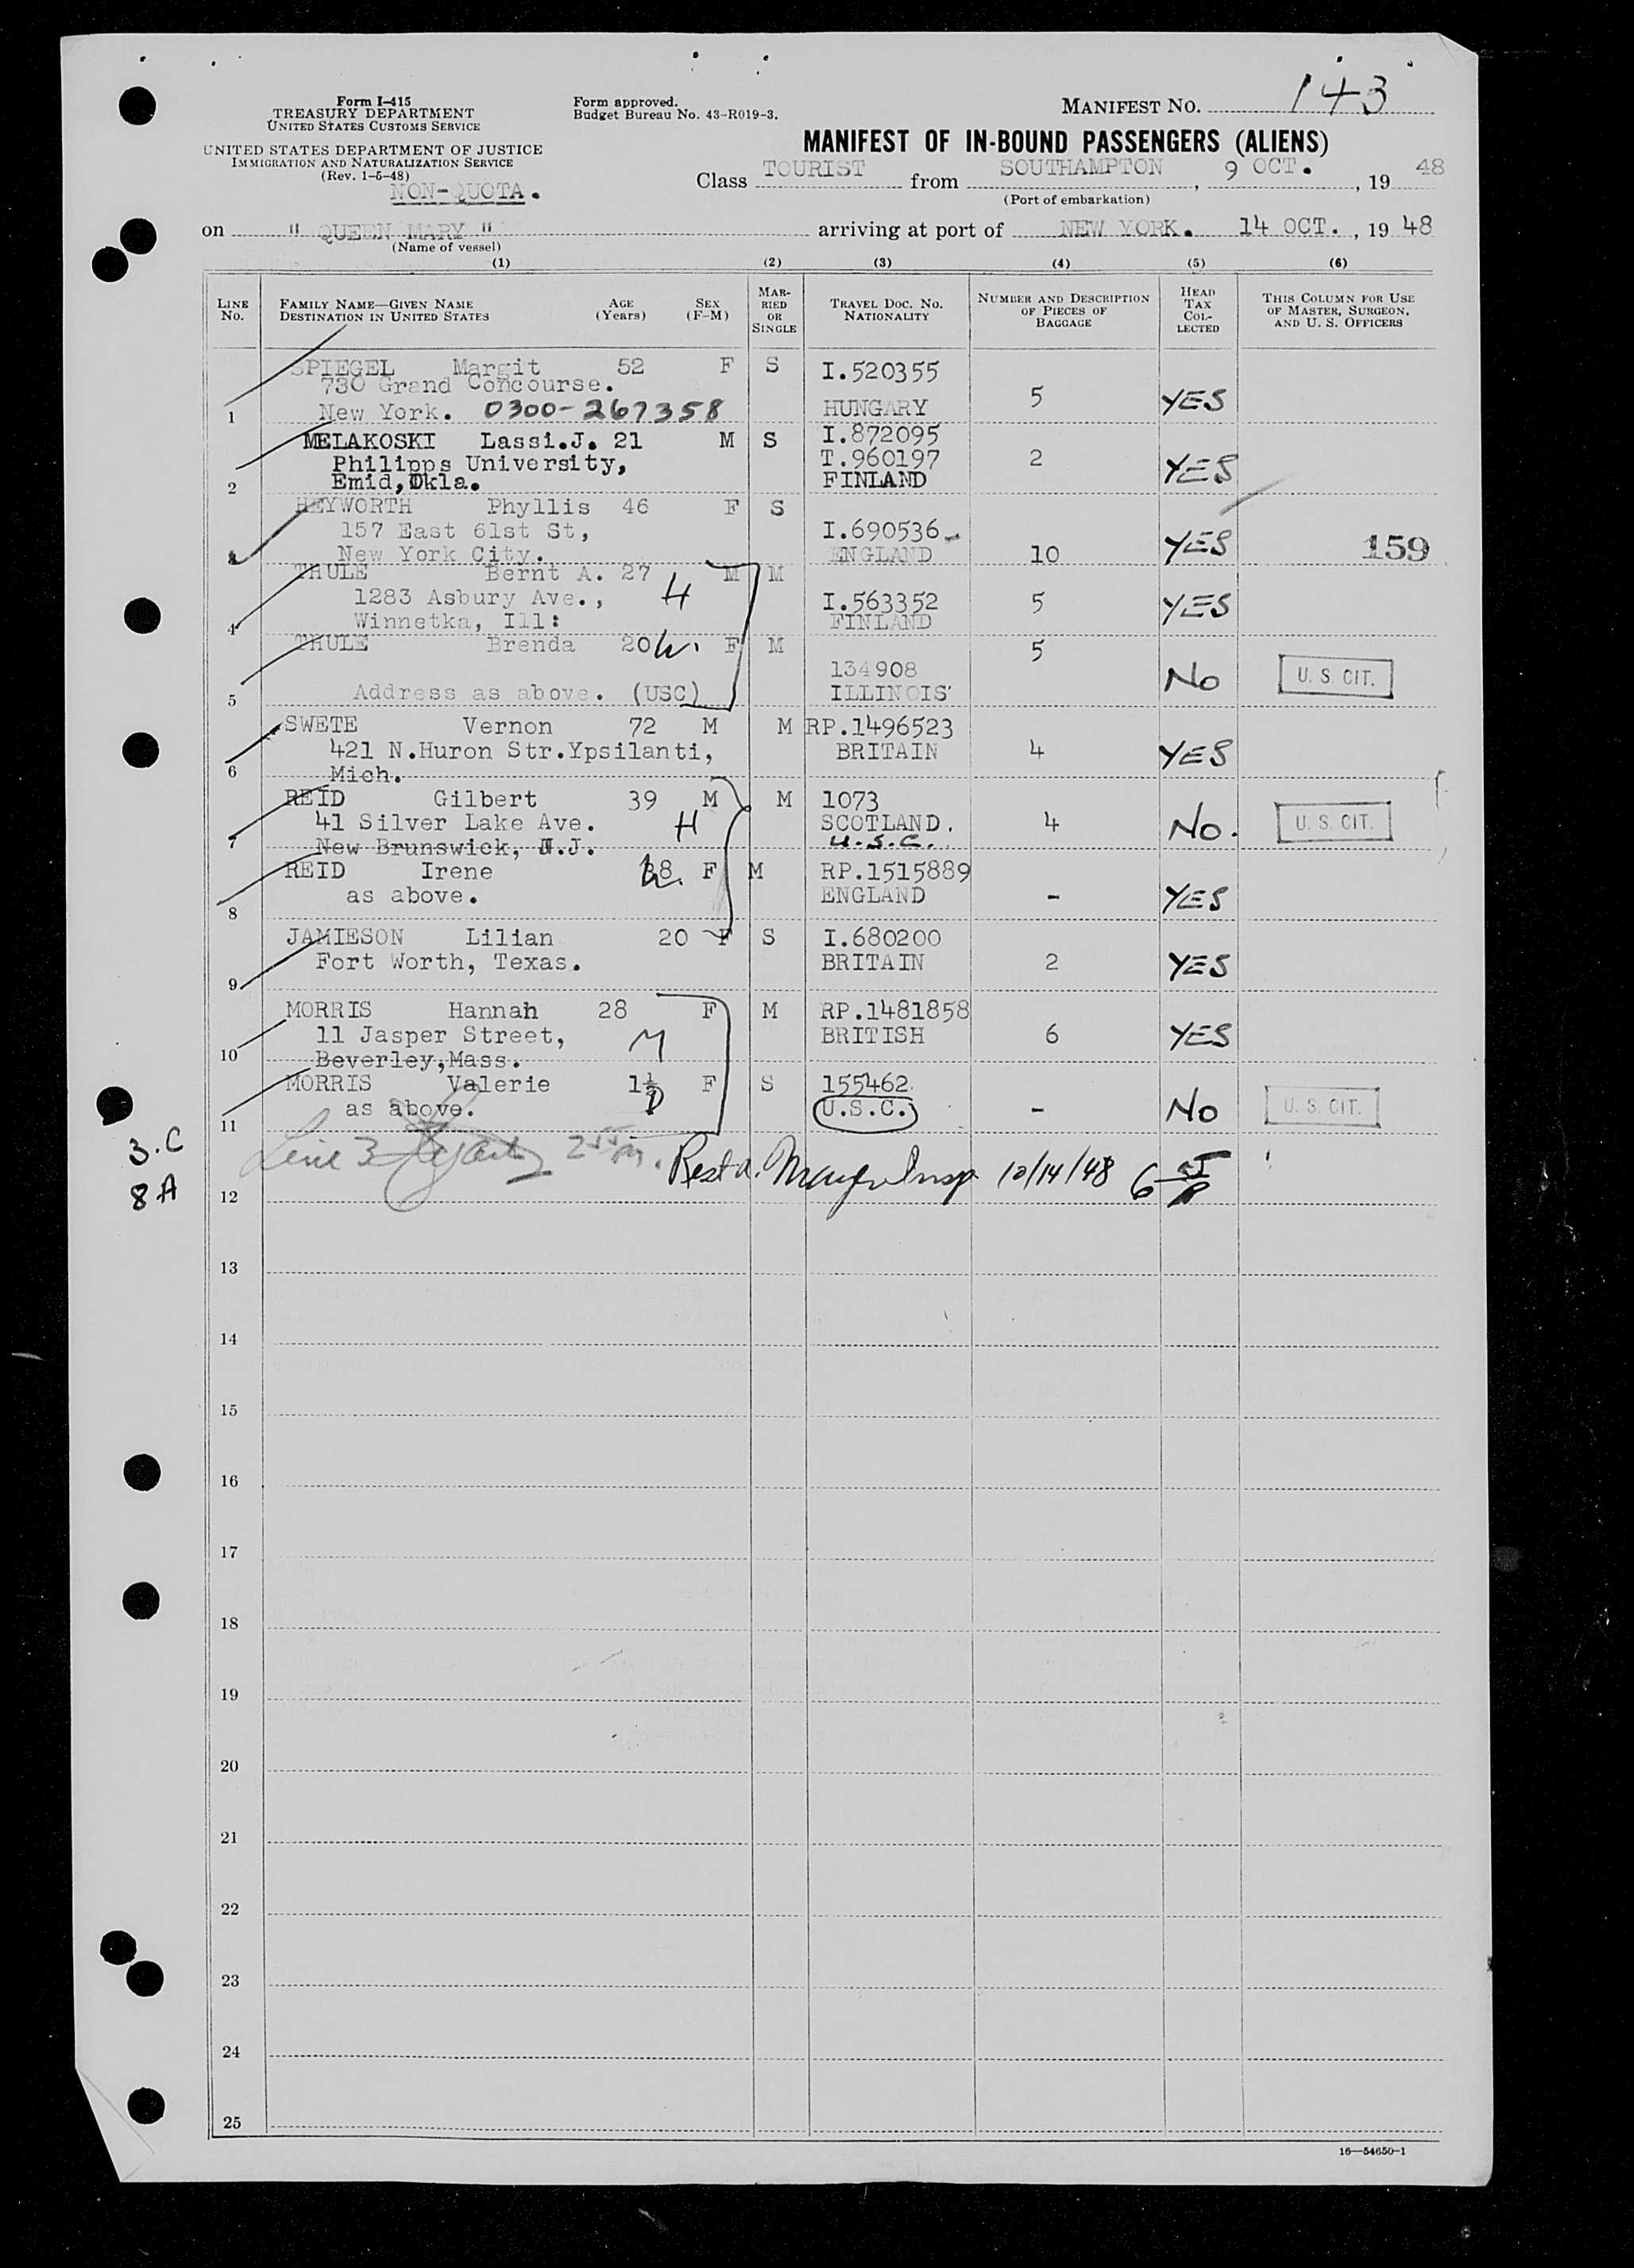 Form I-415
TREASURY DEPARTMENT
UNITED STATES CUSTOMS SERVICE
UNITED STATES DEPARTMENT OF JUSTICE
IMMIGRATION AND NATURALIZATION SERVICE
(Rev. 1-5-48)
NON-QUOTA.
Form approved.
Budget Bureau No. 43-R019-3.
MANIFEST NO. 143
MANIFEST OF IN-BOUND PASSENGERS (ALIENS)
Class TOURIST from SOUTHAMPTON, 9 OCT., 19 48
(Port of embarkation)
on " QUEEN MARY " arriving at port of NEW YORK. 14 OCT., 19 48
(Name of vessel)
(1) (2) (3) (4) (5) (6)
LINE No. FAMILY NAME—GIVEN NAME DESTINATION IN UNITED STATES AGE (Years) SEX (F-M) MARRIED OR SINGLE TRAVEL DOC. NO. NATIONALITY NUMBER AND DESCRIPTION OF PIECES OF BAGGAGE HEAD TAX COLLECTED THIS COLUMN FOR USE OF MASTER, SURGEON, AND U. S. OFFICERS
SPIEGEL Margit 52 F S I.520355
730 Grand Concourse.
1 New York. 0300-267358 HUNGARY 5 YES
MELAKOSKI Lassi.J. 21 M S I.872095
Philipps University, T.960197 2
2 Emid,Okla. FINLAND YES
HEYWORTH Phyllis 46 F S
157 East 61st St, I.690536
3 New York City. ENGLAND 10 YES 159
THULE Bernt A. 27 M M
1283 Asbury Ave., H I.563352 5 YES
4 Winnetka, Ill: FINLAND
THULE Brenda 20 W. F M 5
134908
5 Address as above. (USC) ILLINOIS No U. S. CIT.
SWETE Vernon 72 M M RP.1496523
421 N.Huron Str.Ypsilanti, BRITAIN 4 YES
6 Mich.
REID Gilbert 39 M M 1073
41 Silver Lake Ave. H SCOTLAND. 4 No. U. S. CIT.
7 New Brunswick, N.J. U.S.C.
REID Irene 38 W. F M RP.1515889
as above. ENGLAND - YES
8
JAMIESON Lilian 20 F S I.680200
Fort Worth, Texas. BRITAIN 2 YES
9
MORRIS Hannah 28 F M RP.1481858
11 Jasper Street, M BRITISH 6 YES
10 Beverley,Mass.
MORRIS Valerie 1½ F S 155462
as above. D U.S.C. - No U. S. CIT.
11
3.C
8A
Line 3
Rest a. Insp. 10/14/48 6
12
13
14
15
16
17
18
19
20
21
22
23
24
25
16—54650-1